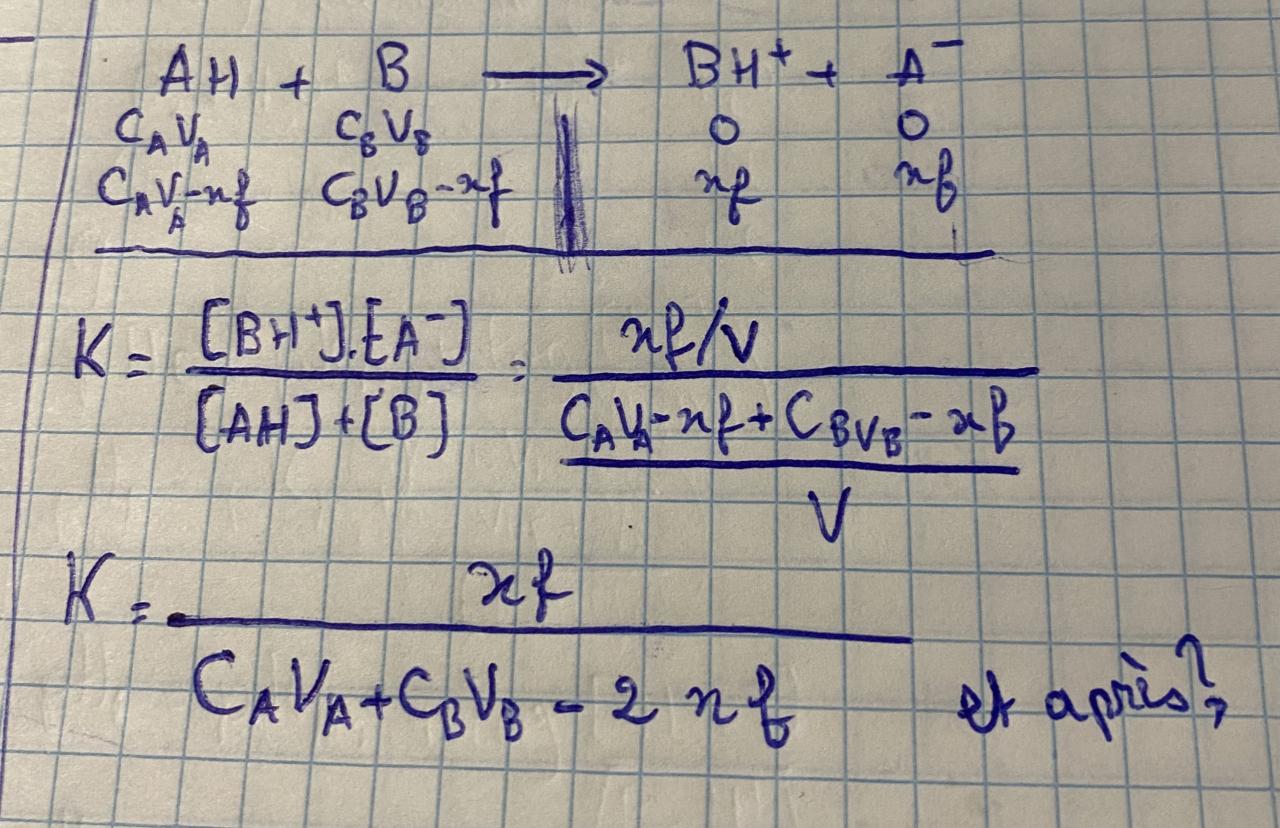 AH + B → BH⁺ + A⁻
C_A V_A C_B V_B 0 0
C_A V_A - xf C_B V_B - xf xf xf
K = [BH⁺].[A⁻] / [AH]+[B] = xf/V / (C_A V_A - xf + C_B V_B - xf / V)
K = xf / C_A V_A + C_B V_B - 2 xf et après?